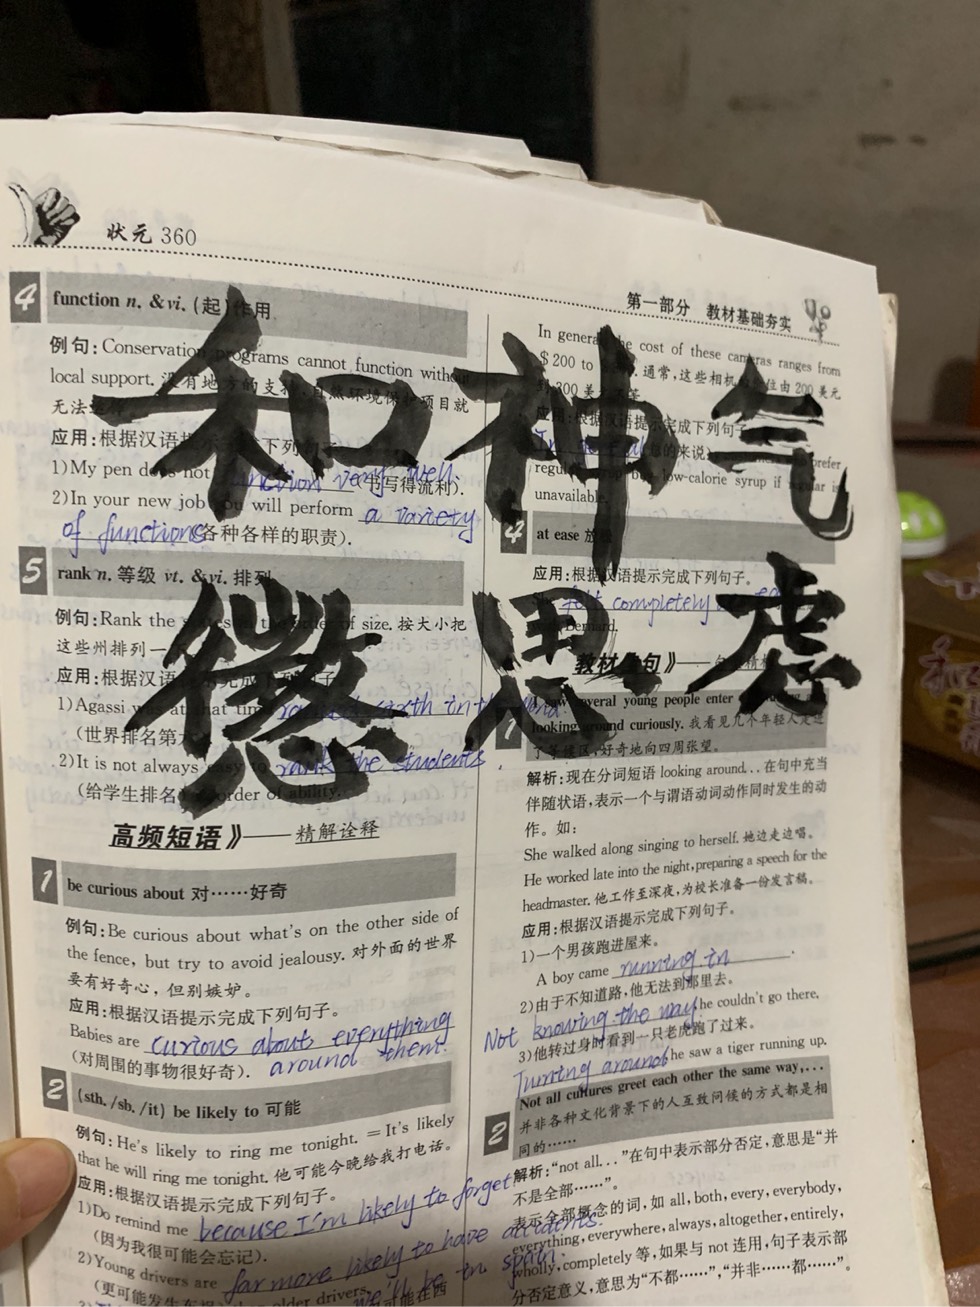 状元 360
第一部分 教材基础夯实
和神气
懲思虑
4 function n. & vi. (起)作用
例句:Conservation programs cannot function without
local support. 没有地方的支持,自然环境保护项目就
无法
应用:根据汉语提示 下列句子
1)My pen does not function very well. (书写得流利).
2)In your new job you will perform a variety
of functions (各种各样的职责).
5 rank n. 等级 vt. & vi. 排列
例句:Rank the of size. 按大小把
这些州排列一
应用:根据汉语 完成下列句子
1)Agassi was at that time in the world.
(世界排名第
2)It is not always easy to rank the students
(给学生排名) order of ability.
高频短语》——精解诠释
1 be curious about 对……好奇
例句:Be curious about what's on the other side of
the fence, but try to avoid jealousy. 对外面的世界
要有好奇心，但别嫉妒。
应用:根据汉语提示完成下列句子。
Babies are curious about everything
around them. (对周围的事物很好奇).
2 (sth./sb./it) be likely to 可能
例句:He's likely to ring me tonight. = It's likely
that he will ring me tonight. 他可能今晚给我打电话。
应用:根据汉语提示完成下列句子。
1)Do remind me because I'm likely to forget
(因为我很可能会忘记).
2)Young drivers are far more likely to have accidents
(更可能发生 older drivers.
In general the cost of these cameras ranges from
$200 to 通常,这些相机 位由 200 美元
300 美
应用:根据汉语提示完成下列句子
的来说) prefer
regular low-calorie syrup if regular is
unavailable.
4 at ease 放
应用:根据汉语提示完成下列句子。
felt completely
Bernard.
教材 句》——
1 several young people enter
looking around curiously. 我看见几个年轻人走进
了等候区,好奇地向四周张望。
解析:现在分词短语 looking around... 在句中充当
伴随状语,表示一个与谓语动词动作同时发生的动
作。如:
She walked along singing to herself. 她边走边唱。
He worked late into the night, preparing a speech for the
headmaster. 他工作至深夜,为校长准备一份发言稿。
应用:根据汉语提示完成下列句子。
1)一个男孩跑进屋来。
A boy came running in.
2)由于不知道路,他无法到那里去。
Not knowing the way he couldn't go there.
3)他转过身时看到一只老虎跑了过来。
Turning around he saw a tiger running up.
2 Not all cultures greet each other the same way,...
并非各种文化背景下的人互致问候的方式都是相
同的……
解析:“not all...”在句中表示部分否定,意思是“并
不是全部……”。
表示全部概念的词,如 all, both, every, everybody,
everything, everywhere, always, altogether, entirely,
wholly, completely 等,如果与 not 连用,句子表示部
分否定意义,意思为“不都……”,“并非……都……”。